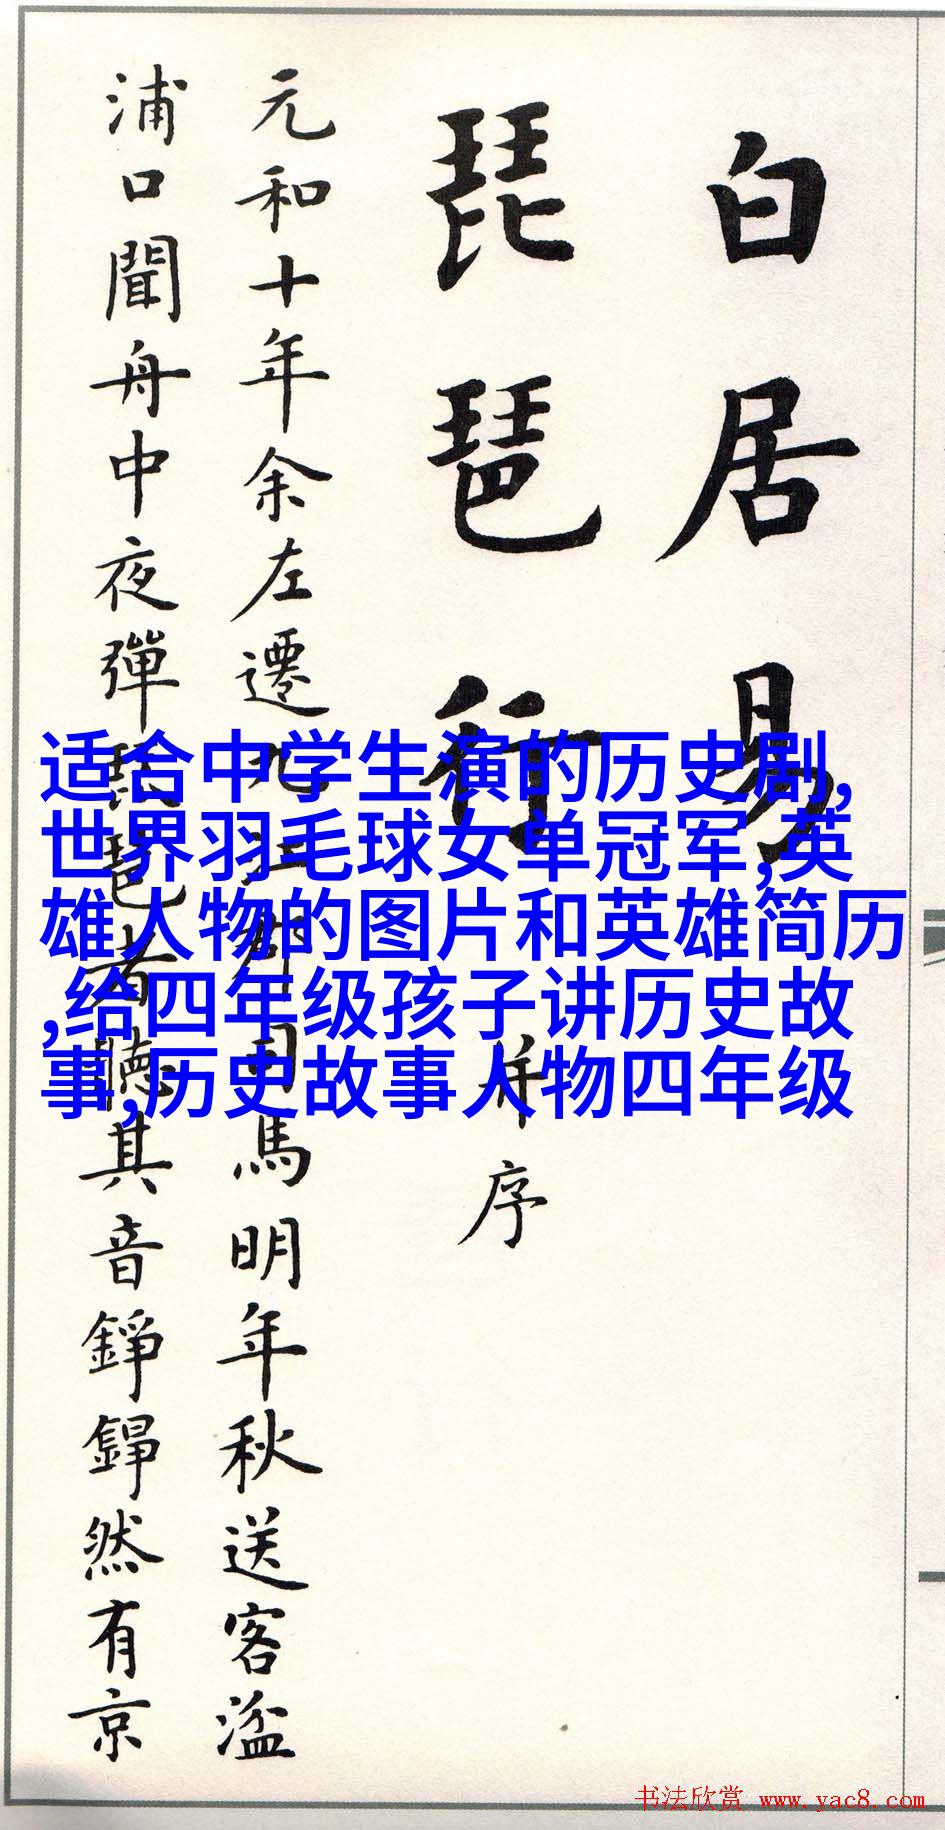 白居易
琵琶行 并序
元和十年余左遷九江郡司馬明年秋送客湓
浦口聞舟中夜彈琵琶者聽其音錚錚然有京
适合中学生演的历史剧,
世界羽毛球女单冠军,英
雄人物的图片和英雄简历
,给四年级孩子讲历史故
事,历史故事人物四年级
书法欣赏 www.yac8.com